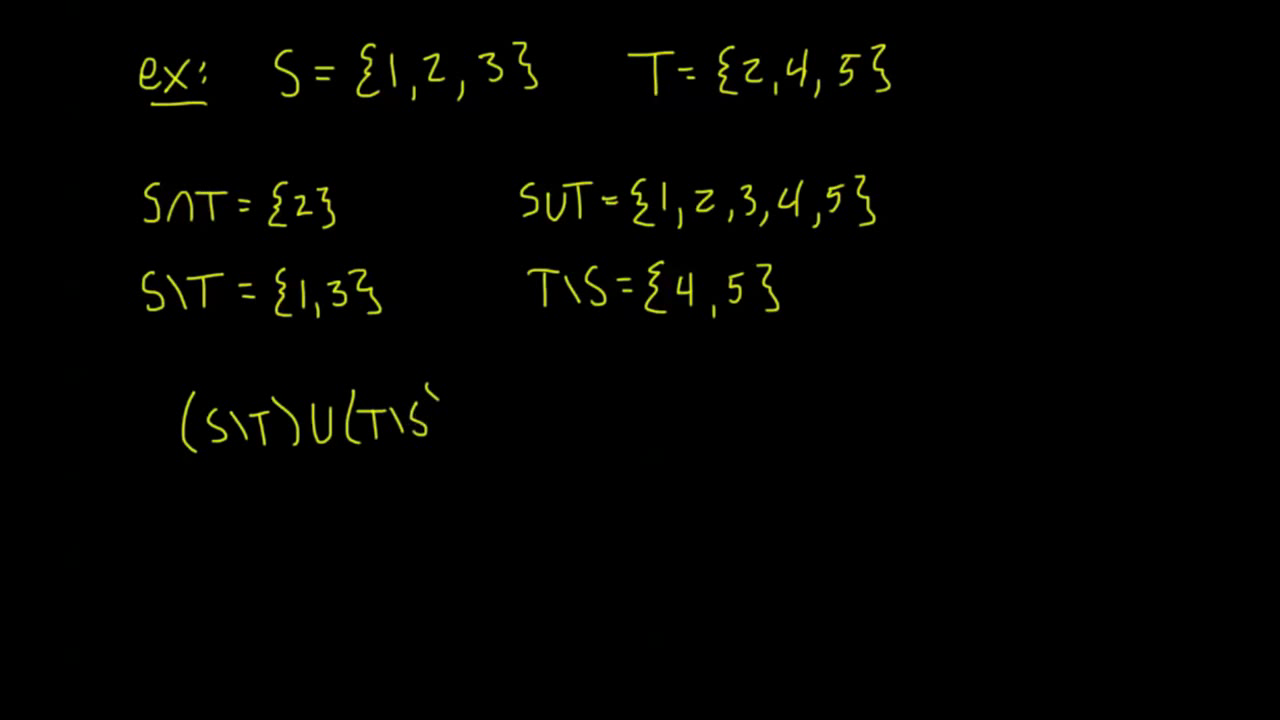 ex: S = {1, 2, 3} T = {2, 4, 5}
S∩T = {2} S∪T = {1, 2, 3, 4, 5}
S\T = {1, 3} T\S = {4, 5}
(S\T) ∪ (T\S